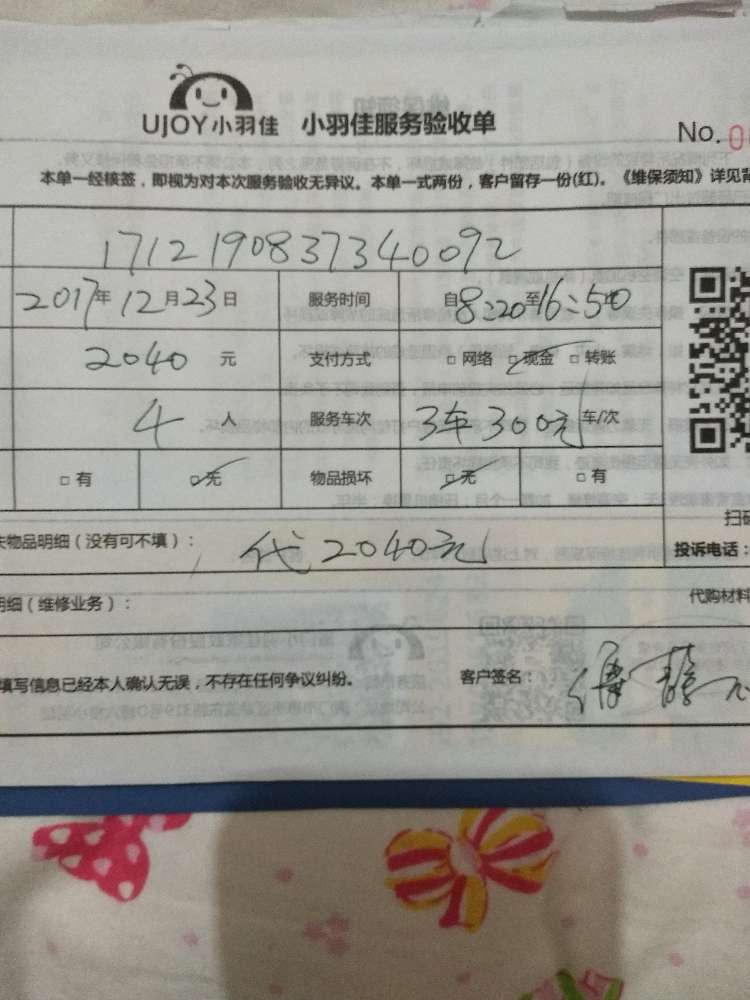 UJOY小羽佳 小羽佳服务验收单
No.
本单一经核签，即视为对本次服务验收无异议。本单一式两份，客户留存一份(红)。《维保须知》详见背
1712190837340092
2017年12月23日 服务时间 自8:20至16:50
2040元 支付方式 □网络 □现金 □转账
4人 服务车次 3车300元 车/次
□有 □无 物品损坏 □无 □有
扫码
失物品明细（没有可不填）： 代2040元
投诉电话：
明细（维修业务）： 代购材料
填写信息已经本人确认无误，不存在任何争议纠纷。 客户签名：